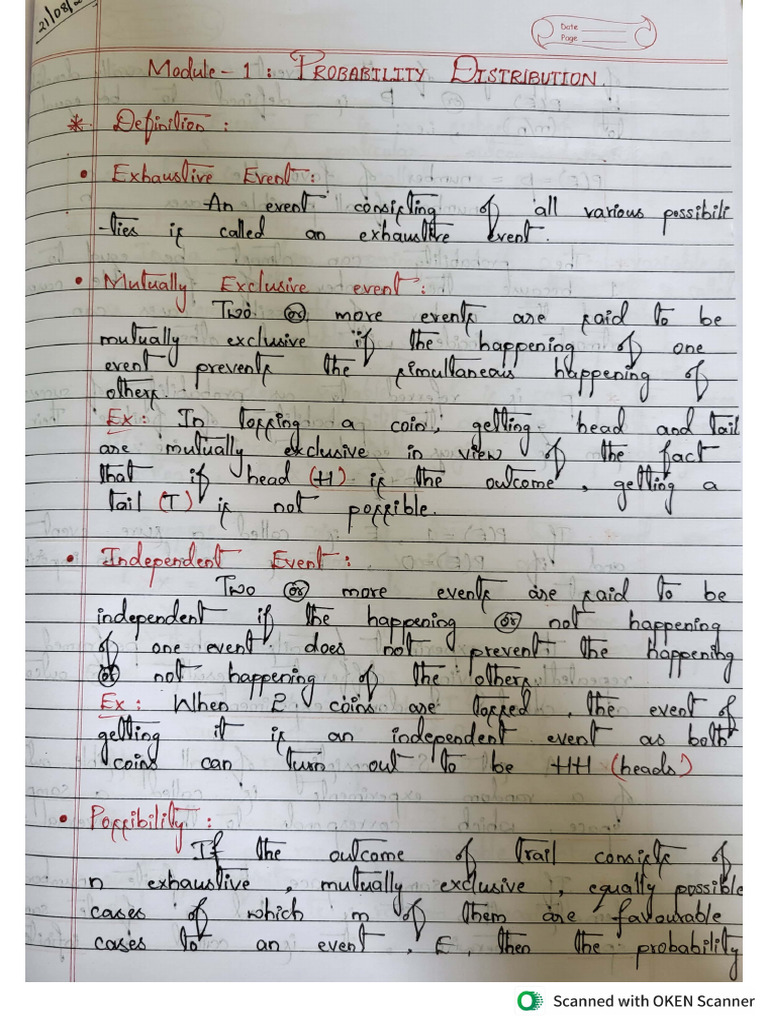 21/08/
Date
Page
Module - 1 : PROBABILITY DISTRIBUTION
* Definition :
• Exhaustive Event :
An event consisting of all various possibili
-ties is called an exhaustive event.
• Mutually Exclusive event :
Two or more events are said to be
mutually exclusive if the happening of one
event prevents the simultaneous happening of
others.
Ex : In tossing a coin, getting head and tail
are mutually exclusive in view of the fact
that if head (H) is the outcome , getting a
tail (T) is not possible.
• Independent Event :
Two or more events are said to be
independent if the happening or not happening
of one event does not prevent the happening
or not happening of the others.
Ex : When 2 coins are tossed , the event of
getting it is an independent event as both
coins can turn out to be HH (heads)
• Possibility :
If the outcome of trail consists of
n exhaustive , mutually exclusive , equally possible
cases of which m of them are favourable
cases to an event , E , then the probability
Scanned with OKEN Scanner